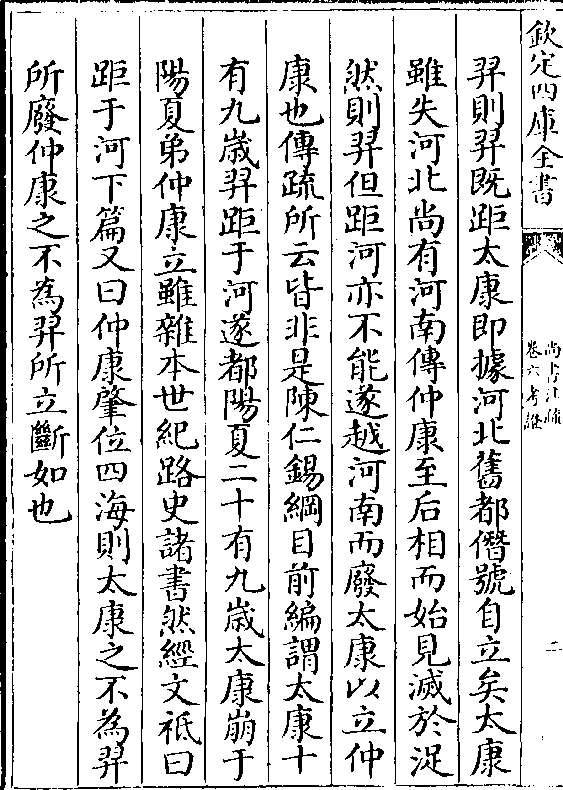 欽定四庫全書
尚書注疏
卷六考證
二
羿則羿既距太康即據河北舊都僭號自立矣太康
雖失河北尚有河南傳仲康至后相而始見滅於浞
然則羿但距河亦不能遂越河南而廢太康以立仲
康也傳疏所云皆非是陳仁錫綱目前編謂太康十
有九歳羿距于河遂都陽夏二十有九歳太康崩于
陽夏弟仲康立雖雜本世紀路史諸書然經文祗曰
距于河下篇又曰仲康肇位四海則太康之不為羿
所廢仲康之不為羿所立斷如也